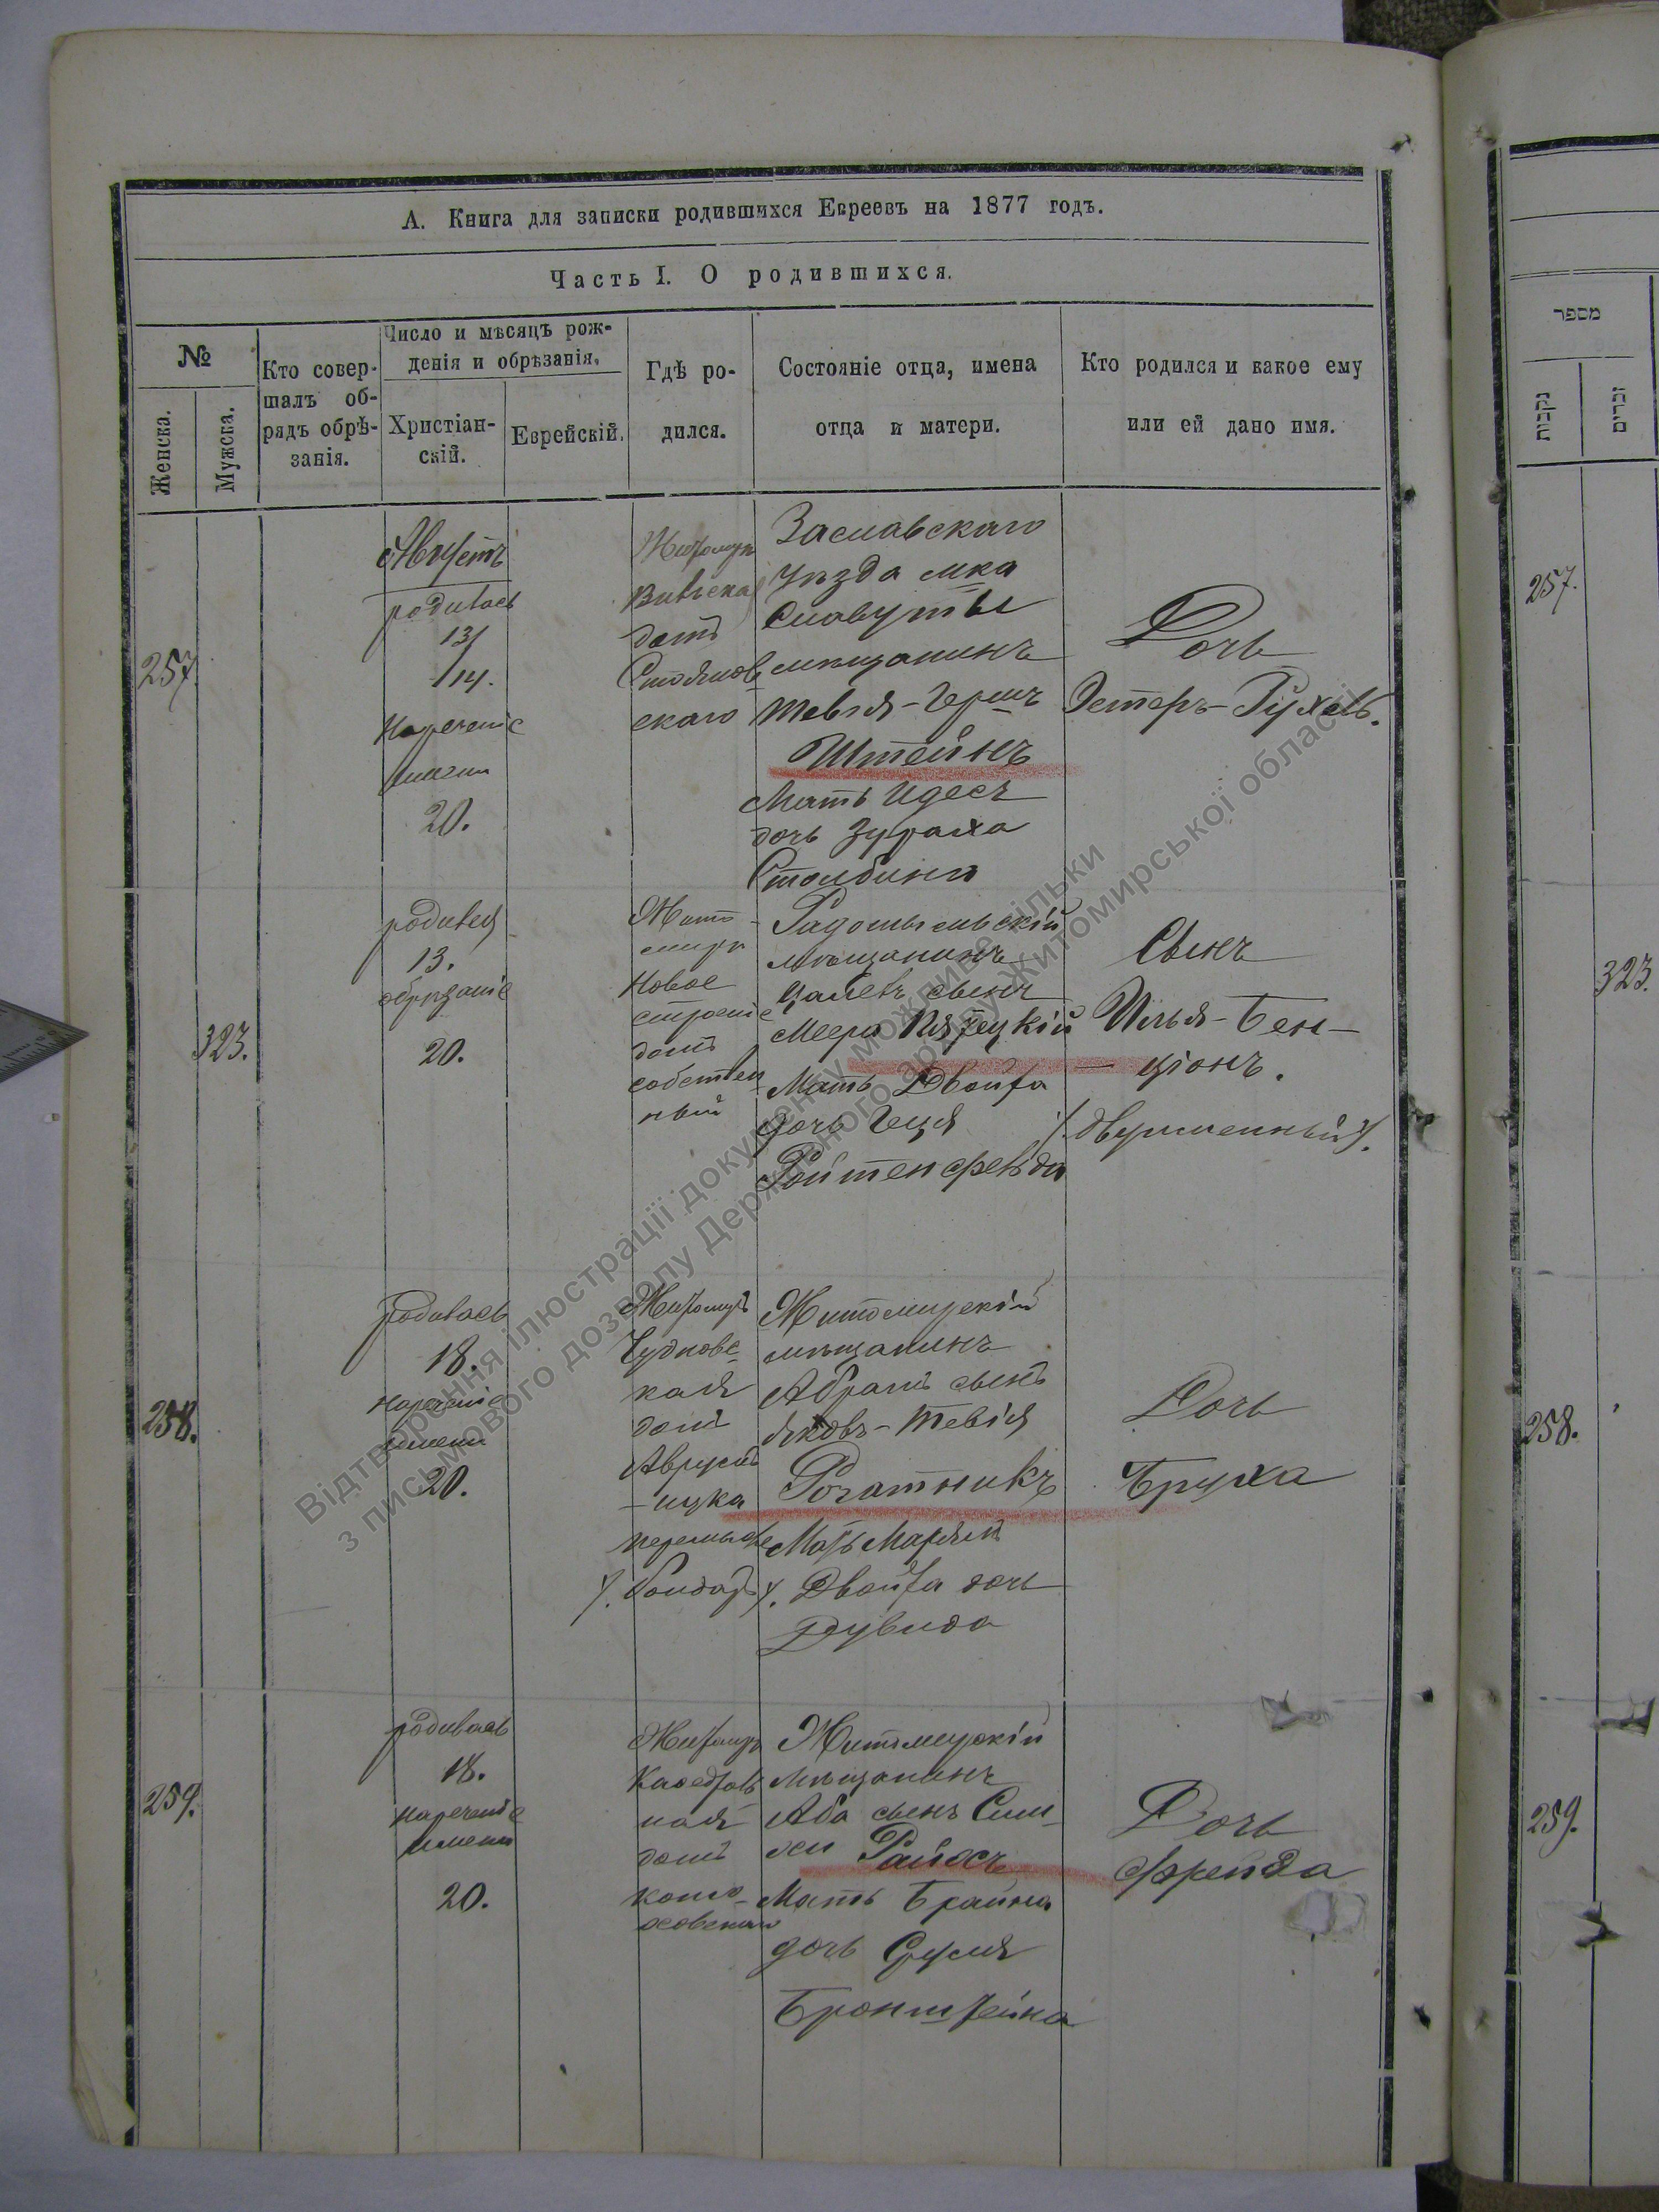 А. Книга для записки родившихся Евреевъ на 1877 годъ.
Часть I. О родившихся.
№
Женска.
Мужска.
Кто совер-
шалъ об-
рядъ обрѣ-
занія.
Число и мѣсяцъ рож-
денія и обрѣзанія.
Христіан-
скій.
Еврейскій.
Гдѣ ро-
дился.
Состояніе отца, имена
отца и матери.
Кто родился и какое ему
или ей дано имя.
257.
Августъ
родилась
13/
/14.
Нареченіе
имени
20.
Житомиръ
Вильска
домъ
Стоянов
скаго
Заславскаго
уѣзда мка
Славуты
мѣщанинъ
Тевья-Гершъ
Штейнъ
Мать Идесъ
дочь Зураха
Столбина
Дочь
Эстеръ-Рухель.
323.
родился
13.
обрѣзаніе
20.
Жито-
миръ
Новое
строеніе
домъ
собствен
ный
Радомысльскій
мѣщанинъ
Цалевъ сынъ
Меера
Мать Двойра
дочь Геця
Ройтенфельда
Сынъ
Илья-Бен-
-ціонъ.
/.двуименный/.
258.
родилась
18.
Нареченіе
имени
20.
Житомиръ
Чудновс-
кая
домъ
-щука
/.бондарь/.
Житомирскій
мѣщанинъ
Абрамъ сынъ
Яковъ-Тевія
Рогатникъ
Мать Марьямъ
Двойра дочь
Дувида
Дочь
Бруха
259.
родилась
18.
Нареченіе
имени
20.
Житомиръ
Каѳедраль
ная
домъ
Житомирскій
мѣщанинъ
Аба сынъ Сим-
хи Райсъ
Мать Брайна
дочь Сруля
Бронштейна
Дочь
Фрейда
מספר
נקבות
זכרים
257.
323.
258.
259.
Відтворення ілюстрації документу можливе тільки
з письмового дозволу Державного архіву Житомирської області